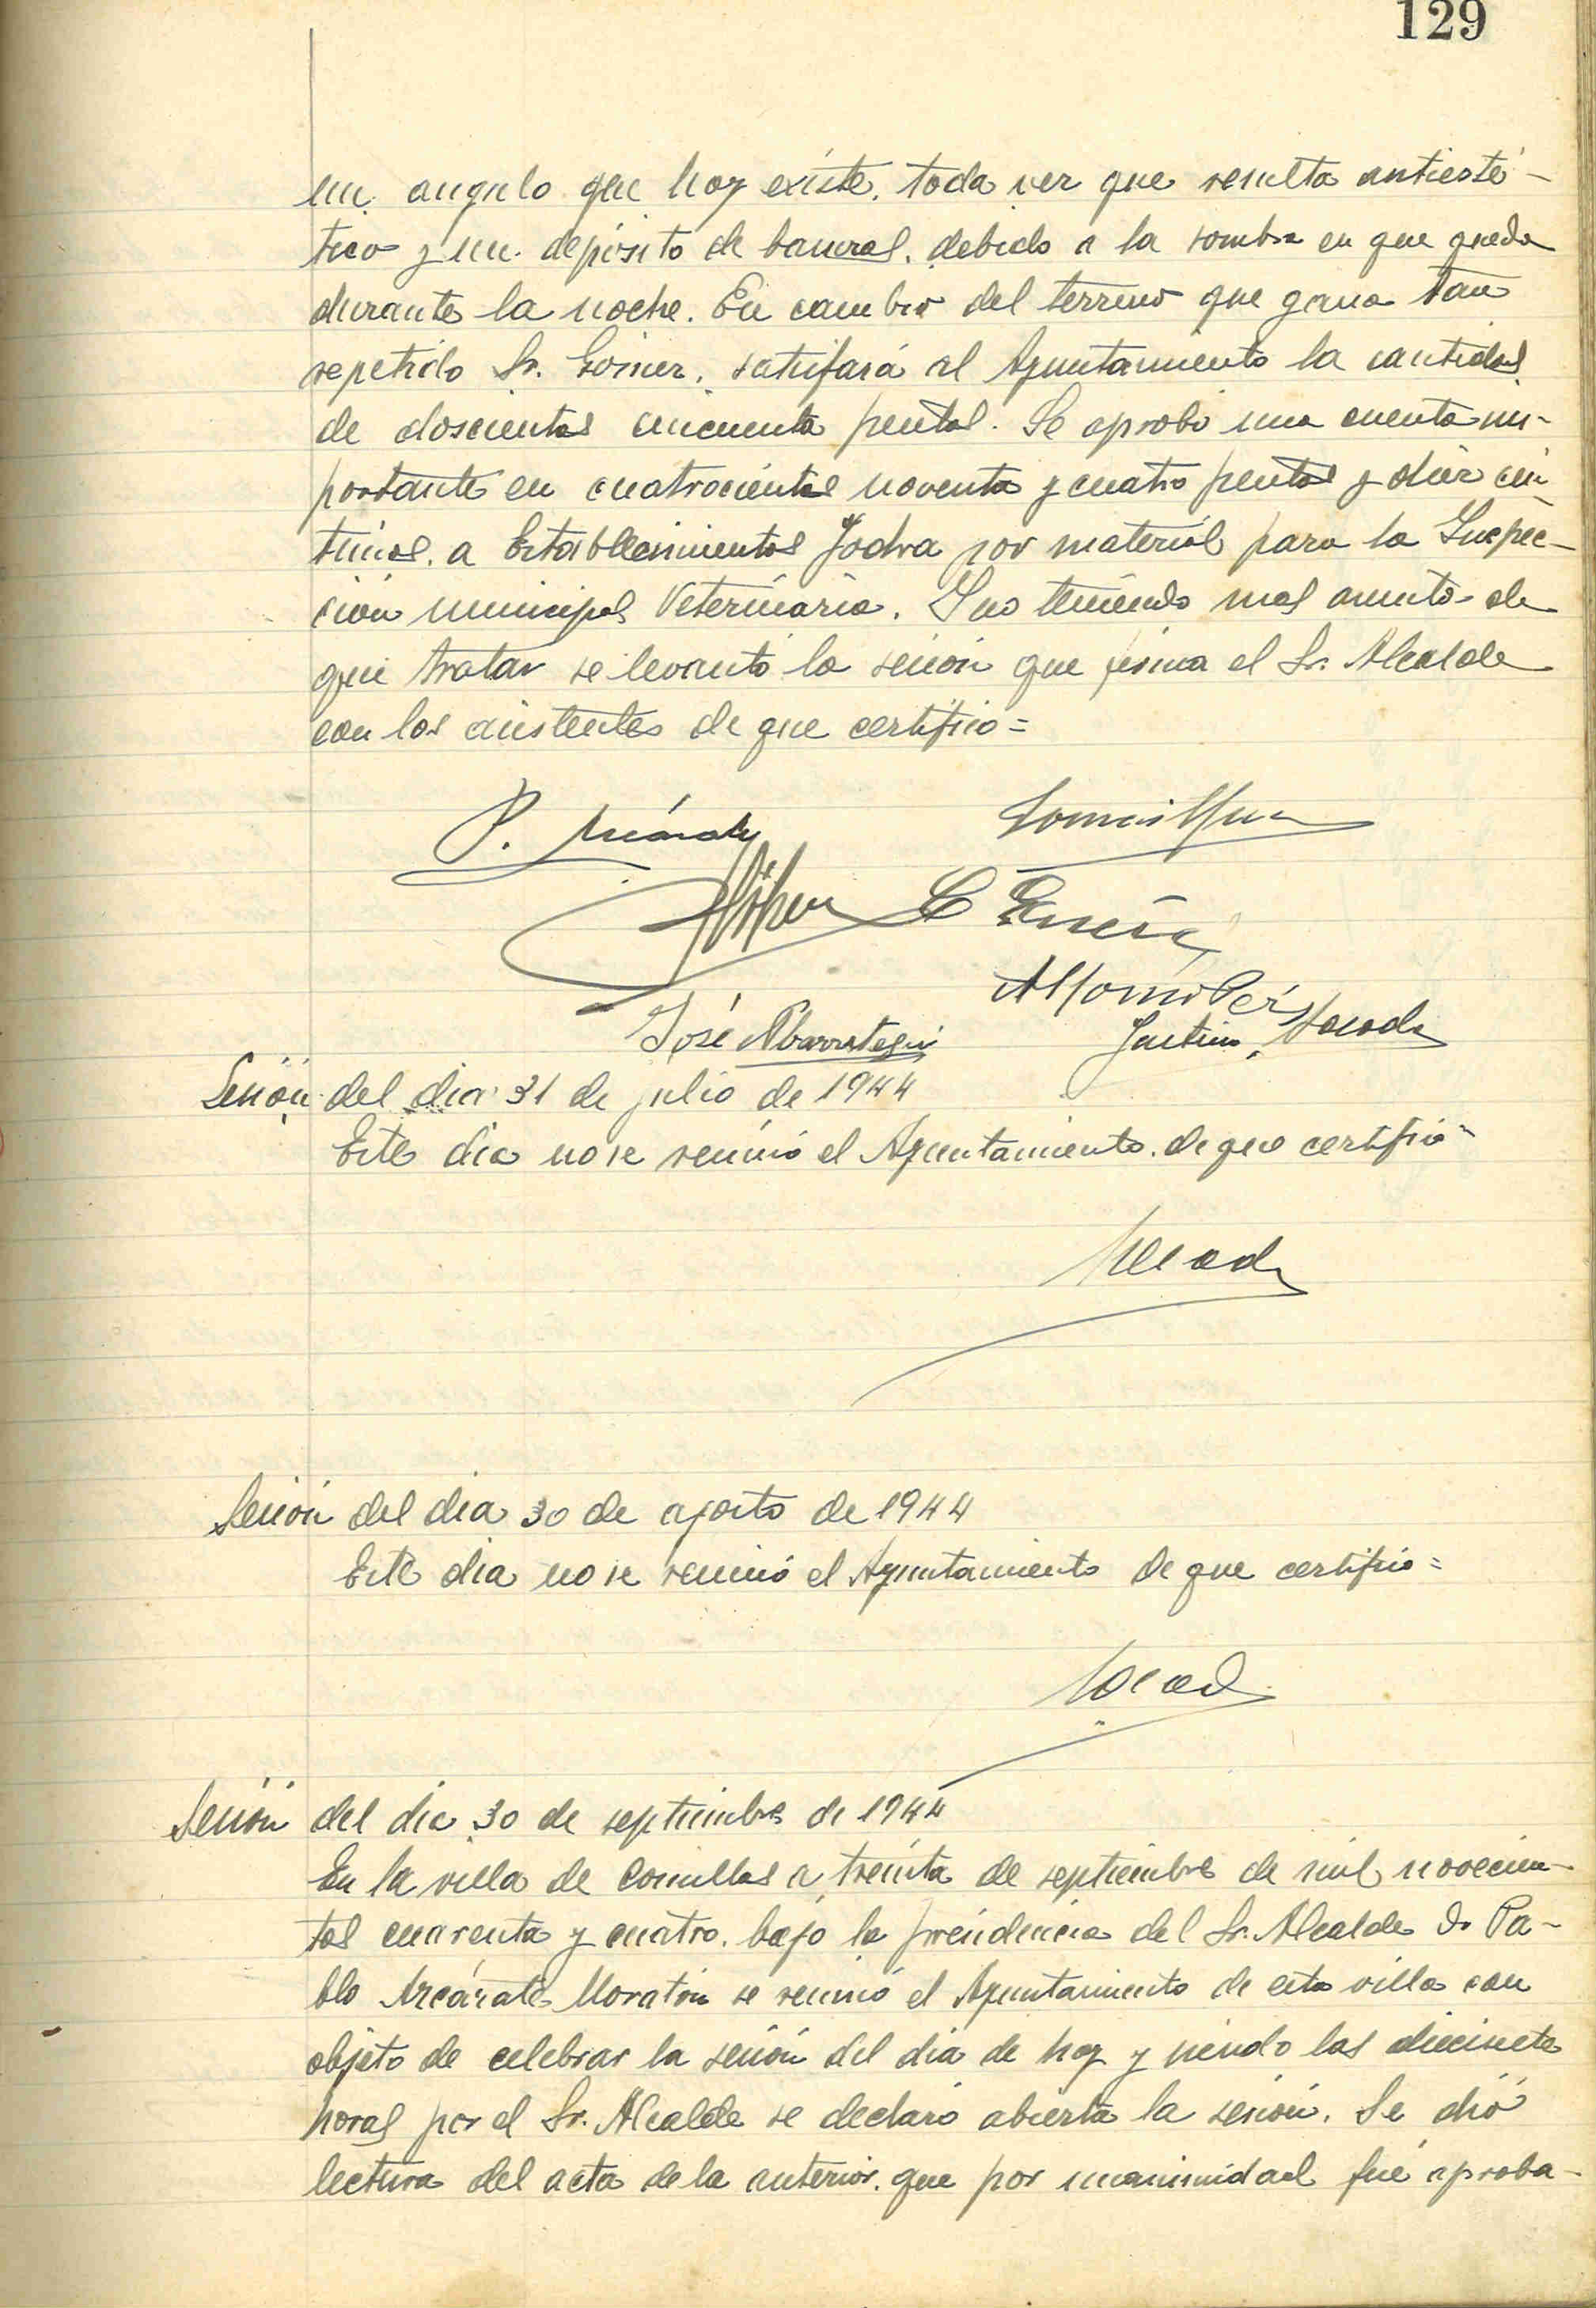 129
un angulo que hoy existe, toda vez que resulta antiesté-
tico y un depósito de basuras, debido a la sombra en que queda
durante la noche. En cambio del terreno que gana tan
repetido Sr. satisfará al Ayuntamiento la cantidad
de doscientas cincuenta pesetas. Se aprobó una cuenta im-
portante en cuatrocientas noventa y cuatro pesetas y diez cén-
timos, a Establecimientos Jodra por material para la Inspec-
ción municipal Veterinaria. Y no teniendo mas asuntos de
que tratar se levantó la sesión que firma el Sr. Alcalde
con los asistentes de que certifico =
P. Azcárate
José Abarrategui
Sesión del dia 31 de julio de 1944
Este dia no se reunió el Ayuntamiento. de que certifico =
Sesión del dia 30 de agosto de 1944
Este dia no se reunió el Ayuntamiento de que certifico =
Sesión del dia 30 de septiembre de 1944
En la villa de Comillas a treinta de septiembre de mil novecien-
tos cuarenta y cuatro, bajo la presidencia del Sr. Alcalde D. Pa-
blo Azcárate Moratón se reunió el Ayuntamiento de esta villa con
objeto de celebrar la sesión del dia de hoy y siendo las diecisiete
horas por el Sr. Alcalde se declaró abierta la sesión. Se dió
lectura del acta de la anterior, que por unanimidad fué aproba-